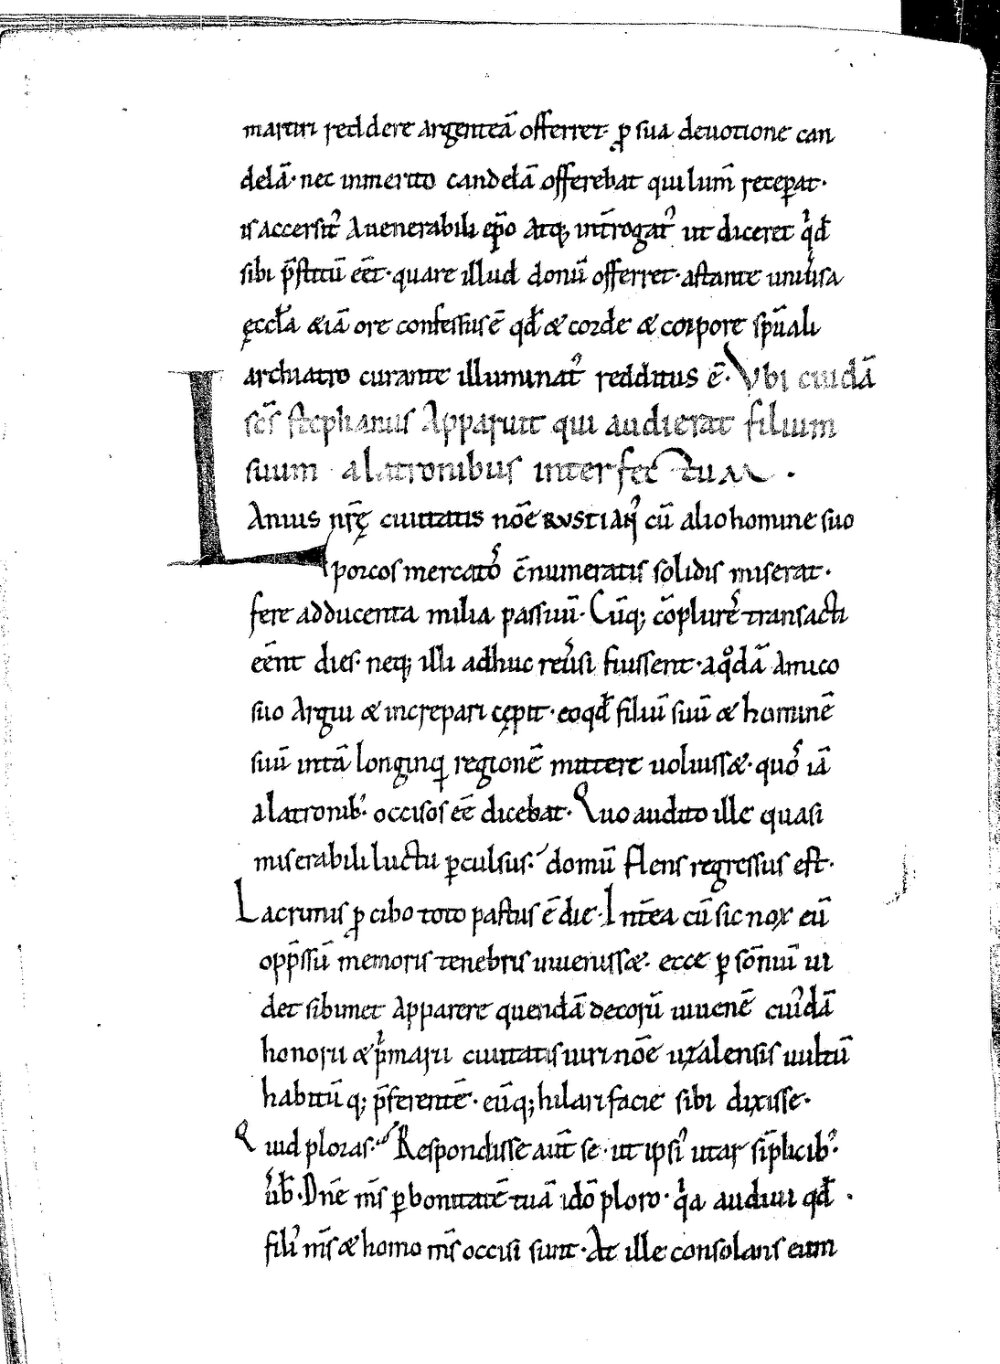 martiri reddere argenteā offerret· ꝓ sua deuotione can
delā· nec inmerito candelā offerebat qui lum̄ receperat·
is accersit᷒ Auenerabili ep̄o Atq; int̄rogat᷒ ut diceret qd̄
sibi p̄stitū eēt· quare illud donū offerret· astante uniu͛sa
ęccl̄a &iā ore confessus ē qd̄ & corde & corpore sp̄uali
archiatro curante illuminat᷒ redditus ē· Vbi cuidā
sc̄s stephanus Apparuit qui audierat filium
suum a latronibus interfectum ·
Lanius nr̄ę ciuitatis nōe RVSTIAN᷒ cū alio homine suo
porcos mercato᷒ c̄numeratis solidis miserat·
fere adducenta milia passuū· Cūq; cōplure᷒ transacti
eēnt dies· neq; illi adhuc reu͛si fuissent· aqodā Amico
suo Argui & increpari cępit· eoqd̄ filiū suū & hominē
suū intā longinq̇ regionē mittere uoluiss&· quo᷒ iā
a latronib᷒· occisos eē dicebat· Quo audito ille quasi
miserabili luctu ꝑculsus· domū flens regressus est·
Lacrimis ꝓ cibo toto pastus ē die· Int̄ea cū sic nox eū
opp̄ssū memoris tenebris inueniss&· ecce ꝑ sōniū ui
det sibimet Apparere quendā decorū iuuenē cui᷒dā
honorii & ṗmarii ciuitatis uiri nōe uzalensis uultū
habitū q; p̄ferentē· eūq; hilari facie sibi dixisse·
Quid ploras· Respondisse aut̄ se· ut ipsi᷒ utar sīplicib᷒·
u͛b̄· Dn̄e m̄s ꝑ bonitatē tuā idō ploro· q̇a audiui qd̄ ·
fili᷒ m̄s & homo m̄s occisi sunt· At ille consolans eum